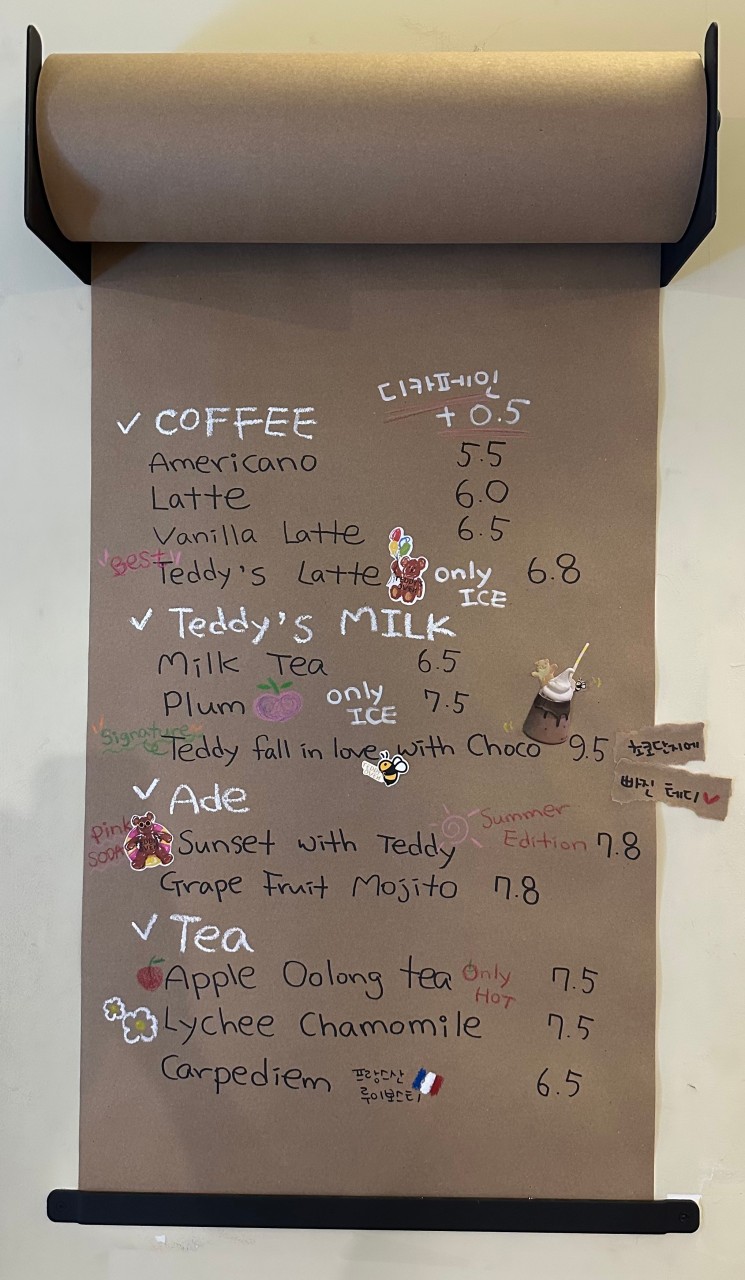 디카페인
✓ COFFEE + 0.5
Americano 5.5
Latte 6.0
Vanilla Latte 6.5
Best Teddy's Latte only ICE 6.8
✓ Teddy's MILK
Milk Tea 6.5
Plum only ICE 7.5
Signature Teddy fall in love with Choco 9.5 초코단지에
빠진 테디
✓ Ade
Pink SODA Sunset with Teddy Summer Edition 7.8
Grape Fruit Mojito 7.8
✓ Tea
Apple Oolong tea Only HOT 7.5
Lychee Chamomile 7.5
Carpediem 프랑스산 루이보스티 6.5